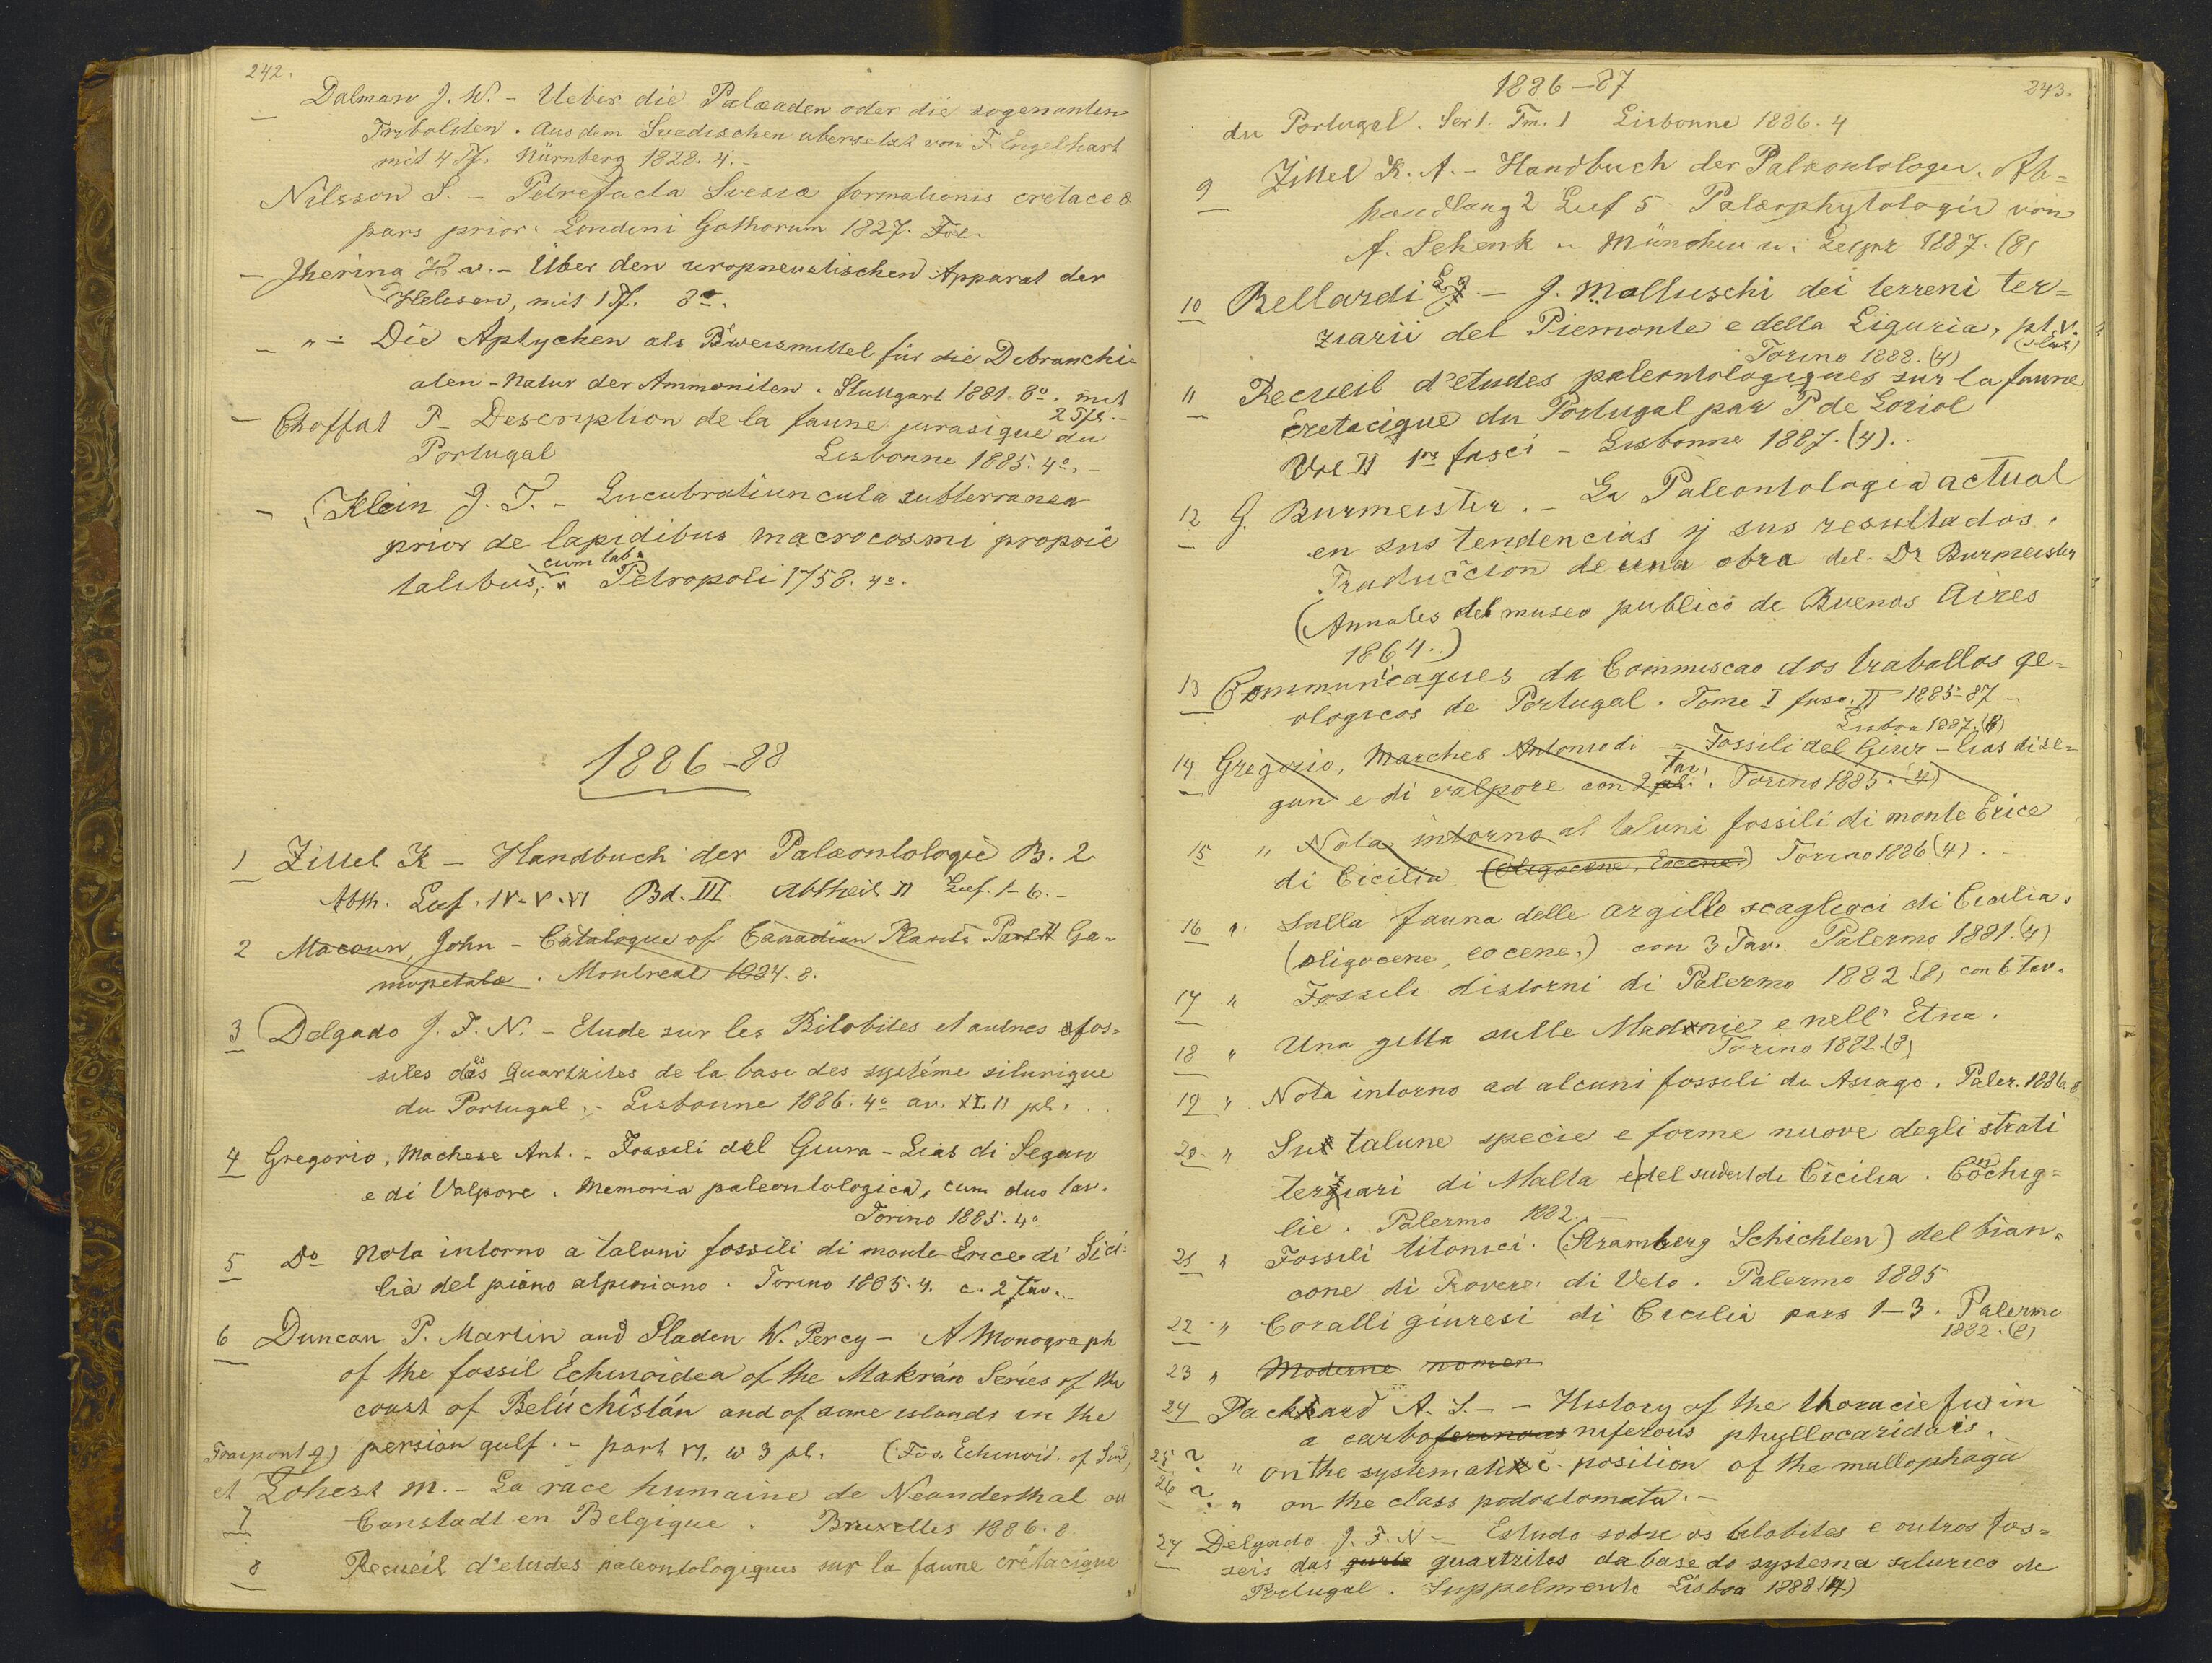 242.
Dalman J. W. - Ueber die Palæaden oder die sogenanten
Trilobiten. Aus dem Svedischen ubersetzt von F. Engelhart
mit 4 Tf. Nürnberg 1828. 4. -
Nilsson S. - Petrefacta Svecia formationis cretacea
pars prior. Londini Gothorum 1827. Fol.
- Jhering H v. - Über den uropneustischen Apparat der
Heliceen, mit 1 Tf. 8º.
- " - Die Aptychen als Beweismittel für die Dibranchi-
aten-Natur der Ammoniten. Stuttgart 1881. 8º. mit
2 Tfl. -
- Choffat P - Description de la faune jurasique du
Portugal Lisbonne 1885. 4º. -
- Klein J. T. - Lucubratiuncula subterranea
prior de lapidibus macrocosmi proprie
cum tab.
talibus, " Petropoli 1758. 4º.
1886-88
1 Zittel K - Handbuch der Palæontologie B. 2
Abth. Lief. IV-V-VI Bd. III Abtheil II Lief. 1-6. -
2 Macoun, John - Catalogue of Canadian Plants Part II Ga-
mopetalæ. Montreal 1884. 8.
3 Delgado J. F. N. - Etude sur les Bilobites et autres fos-
siles des Quartzites de la base des systéme silurique
du Portugal. - Lisbonne 1886. 4º av. XLII pl.
4 Gregorio, Machese Ant. - Fossili del Giura-Lias di Segan
e di Valpore. Memoria paleontologica, cum duo tav.
Torino 1885. 4º
5 Dº Nota intorno a taluni fossili di monte Erice di Sici-
lia del piano alpiniano. Torino 1885. 4. c. 2 tav.
6 Duncan P. Martin and Sladen W. Percy - A Monograph
of the fossil Echinoidea of the Makrán Series of the
coast of Belúchistán and of some islands in the
persian gulf. - part VI. w 3 pl. (Fos. Echinoid. of Sind)
Fraipont J)
et Lohest M. - La race humaine de Neanderthal ou
7 Canstadt en Belgique. Bruxelles 1886. 8.
8 Recueil d'etudes paleontologiques sur la faune crétacique
1886-87
243.
du Portugal. Ser 1. Tm. 1 Lisbonne 1886. 4
9 Zittel K. A. - Handbuch der Palæontologie. Ab-
handlang 2 Lief 5 Palæophytologie von
A. Schenk " München u. Leipz 1887. (8)
10 Bellardi L. - J. Molluschi dei terreni ter-
ziarii del Piemonte e della Liguria, pt. V.
Torino 1888. (4)
11 Recueil d'etudes paleontologiques sur la faune
Cretacique du Portugal par P de Loriol
Vol II 1re fasci - Lisbonne 1887. (4). -
12 G. Burmeister. - La Paleontologia actual
en sus tendencias y sus resultados.
Traduccion de una obra del Dr Burmeister
(Annales del museo publico de Buenos Aires
1864.)
13 Communicaques da Commiscao dos traballos ge-
ologicos de Portugal. Tome I fasc. II 1885-87 -
Lisboa 1887. (8)
14 Gregorio, Marches Antonio di - Fossili del Giur-Lias di se-
gan e di valpore con 2 tav. Torino 1885. (4)
15 " Nota intorno at taluni fossili di monte Erice
di Cicilia (Oligocene, Eocene.) Torino 1886 (4). -
16 " Sulla fauna delle argille scagliosi di Cicilia.
(oligocene, eocene.) con 3 Tav. Palermo 1881. (4)
17 " Fossili distorni di Palermo 1882 (8) con 6 tav.
18 " Una gitta sulle Madonie e nell' Etna.
Torino 1882. (8)
19 " Nota intorno ad alcuni fossili di Asiago. Paler. 1886. 8
20 " Su talune specie e forme nuove degli strati
terziari di Malta e del sudest di Cicilia. Conchig-
lie. Palermo 1882. -
21 " Fossili titonici. (Stramberg Schichten) del bian-
cone di Rovere di Velo. Palermo 1885
22 " Coralli giuresi di Cicilia pars 1-3. Palermo
1882. (8)
23 " Moderne nomen
24 Packard A. S. - - History of the thoracie feet in
a carboferinous niferous phyllocaridais.
25 ? " on the systematic position of the mallophaga
26 ? " on the class podostomata. -
27 Delgado J. F. N - Estudo sobre os bilobites e outros fos-
seis das quartzites da base do systema silurico de
Portugal. Suppelmento Lisboa 1888. (4)